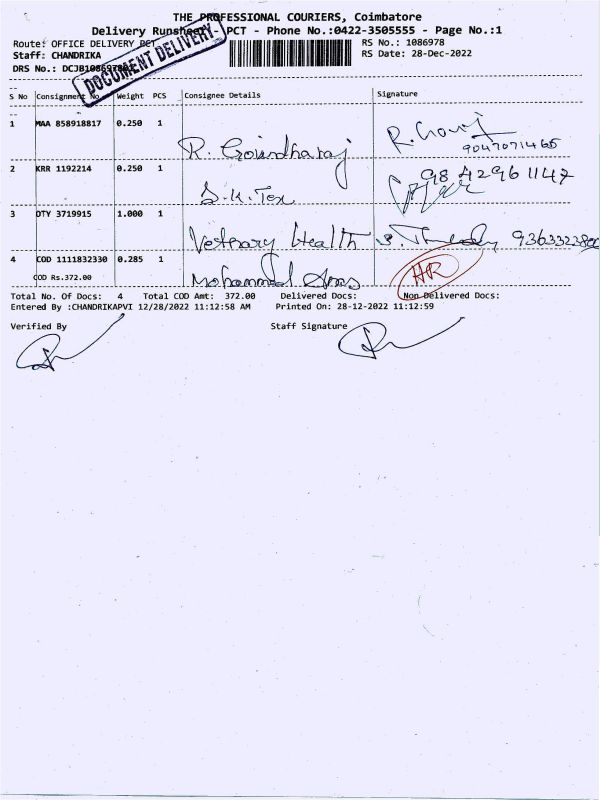 THE PROFESSIONAL COURIERS, Coimbatore
Delivery Runsheet - PCT - Phone No.:0422-3505555 - Page No.:1
Route: OFFICE DELIVERY PCT
RS No.: 1086978
Staff: CHANDRIKA
RS Date: 28-Dec-2022
DRS No.: DCJB1086978
DOCUMENT DELIVERY
S No Consignment No. Weight PCS Consignee Details Signature
1 MAA 858918817 0.250 1
R. Goindharaj
9047071465
2 KRR 1192214 0.250 1
S.K. Tex
9842961147
3 OTY 3719915 1.000 1
Health
4 COD 1111832330 0.285 1
COD Rs.372.00
Mohammed
HR
Total No. Of Docs: 4 Total COD Amt: 372.00 Delivered Docs: Non Delivered Docs:
Entered By :CHANDRIKAPVI 12/28/2022 11:12:58 AM Printed On: 28-12-2022 11:12:59
Verified By Staff Signature